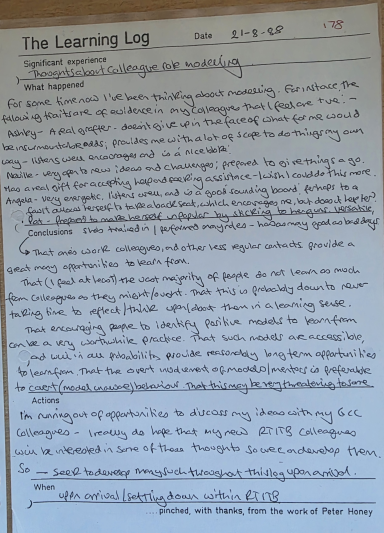 178
The Learning Log Date 21-8-88
Significant experience
Thoughts about Colleague role modelling
What happened
For some time now I've been thinking about modelling. For instance, the
following traits are of evidence in my colleagues that I feel are +ve: -
Ashley - A real grafter - doesn't give up in the face of what for me would
be insurmountable odds; provides me with a lot of scope to do things my own
way - listens well, encourages and is a nice bloke.
Neville - very open to new ideas and challenges; prepared to give things a go.
Has a real gift for accepting help and seeking assistance - wish I could do this more.
Angela - very energetic, listens well, and is a good sounding board; perhaps to a
fault allows herself to take a back seat, which encourages me, but does it help her?
Pat - Prepared to make herself unpopular by sticking to her guns. Versatile,
Conclusions she's trained in / performed many roles - has as many good as bad days
That one's work colleagues, and other less regular contacts, provide a
great many opportunities to learn from.
That (I feel at least) the vast majority of people do not learn as much
from colleagues as they might/ought. That this is probably down to never
taking time to reflect/think upon/about them in a learning sense.
That encouraging people to identify positive models to learn from
can be a very worthwhile practice. That such models are accessible,
and will in all probability provide reasonably long term opportunities
to learn from. That the overt involvement of models/mentors is preferable
to covert (model unaware) behaviour. That this may be very threatening to some
Actions
I'm running out of opportunities to discuss my ideas with my GCC
colleagues - I really do hope that my new RTITB colleagues
will be interested in some of these thoughts so we can develop them.
So - seek to develop many such throughout this log upon arrival.
When
upon arrival/settling down within RTITB
....pinched, with thanks, from the work of Peter Honey